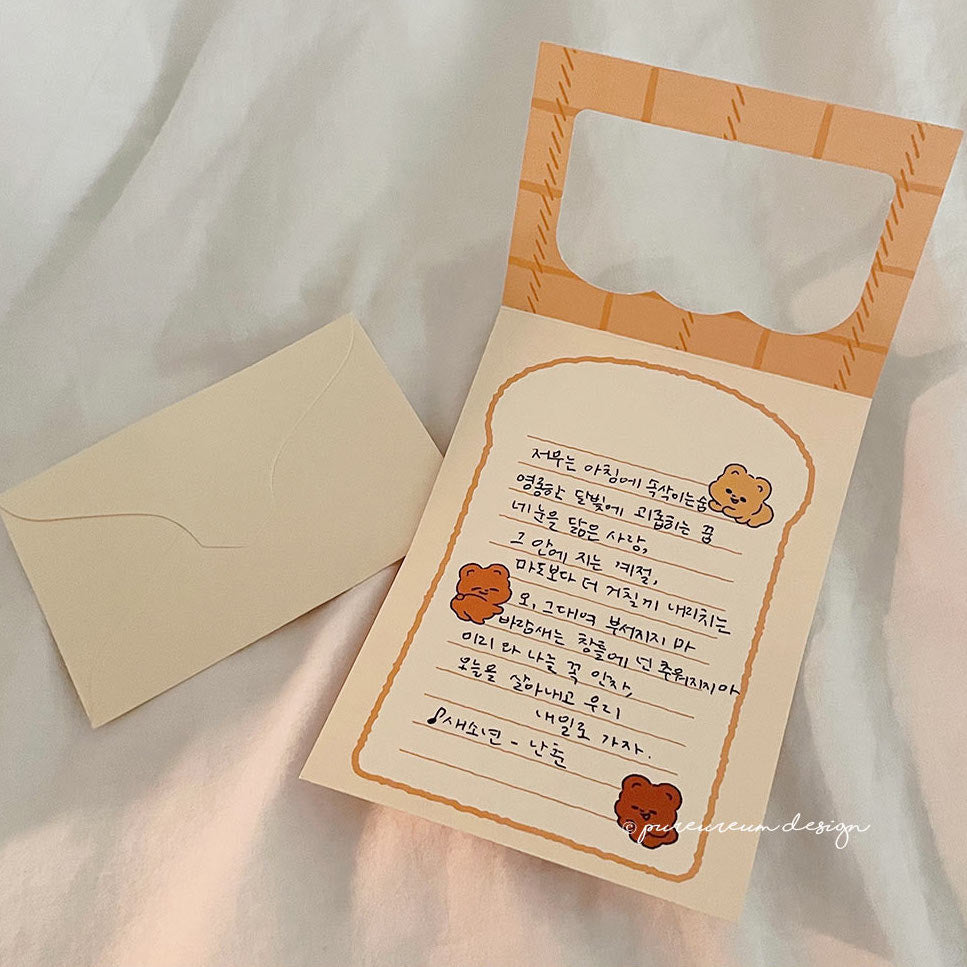 저무는 아침에 속삭이는 숨
영롱한 달빛에 괴롭히는 꿈
네 눈을 닮은 사랑,
그 안에 지는 계절,
파도보다 더 거칠게 내리치는
오, 그대여 부서지지 마
바람새는 창틀에 넌 추워지지 마
이리 와 나를 꼭 안자,
오늘을 살아내고 우리
내일로 가자.
♪새소년 - 난춘
© pureureum design